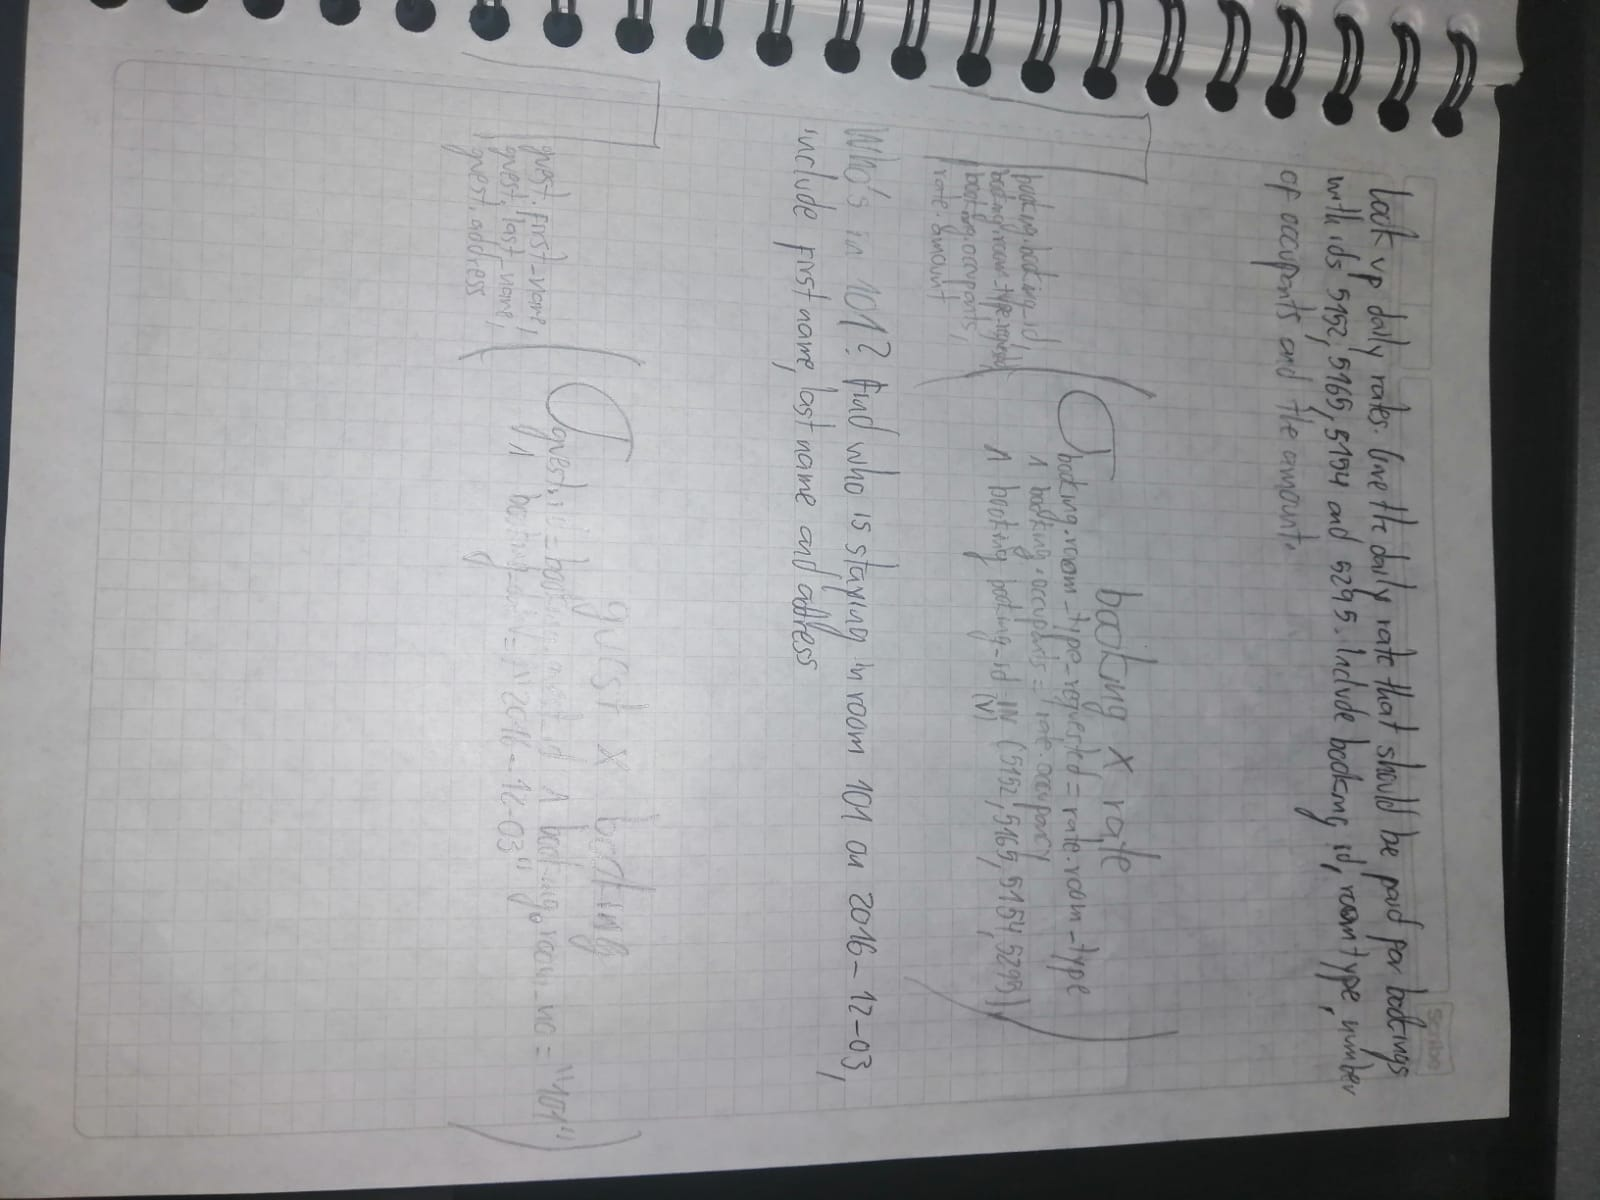 Look up daily rates. Give the daily rate that should be paid for bookings
with ids 5152, 5165, 5154 and 5295. Include booking id, room type, number
of occupants and the amount.
booking × rate
π booking.booking_id,
booking.room_type_requested,
booking.occupants,
rate.amount
( σ booking.room_type_requested = rate.room_type
∧ booking.occupants = rate.occupancy
∧ booking.booking_id IN (5152, 5165, 5154, 5295) )
Who's in 101? Find who is staying in room 101 on 2016-12-03,
include first name, last name and address
guest × booking
π guest.first_name,
guest.last_name,
guest.address
( σ guest.id = booking.guest_id ∧ booking.room_no = "101"
∧ = "2016-12-03" )
Scribe